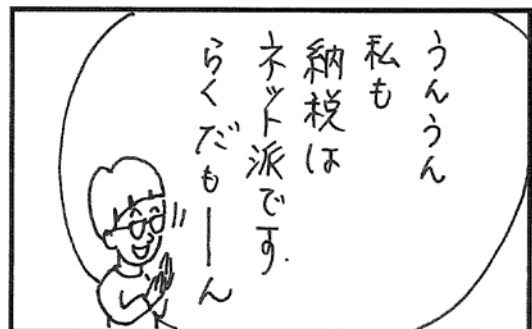 うんうん
私も
納税は
ネット派です.
らくだもーん